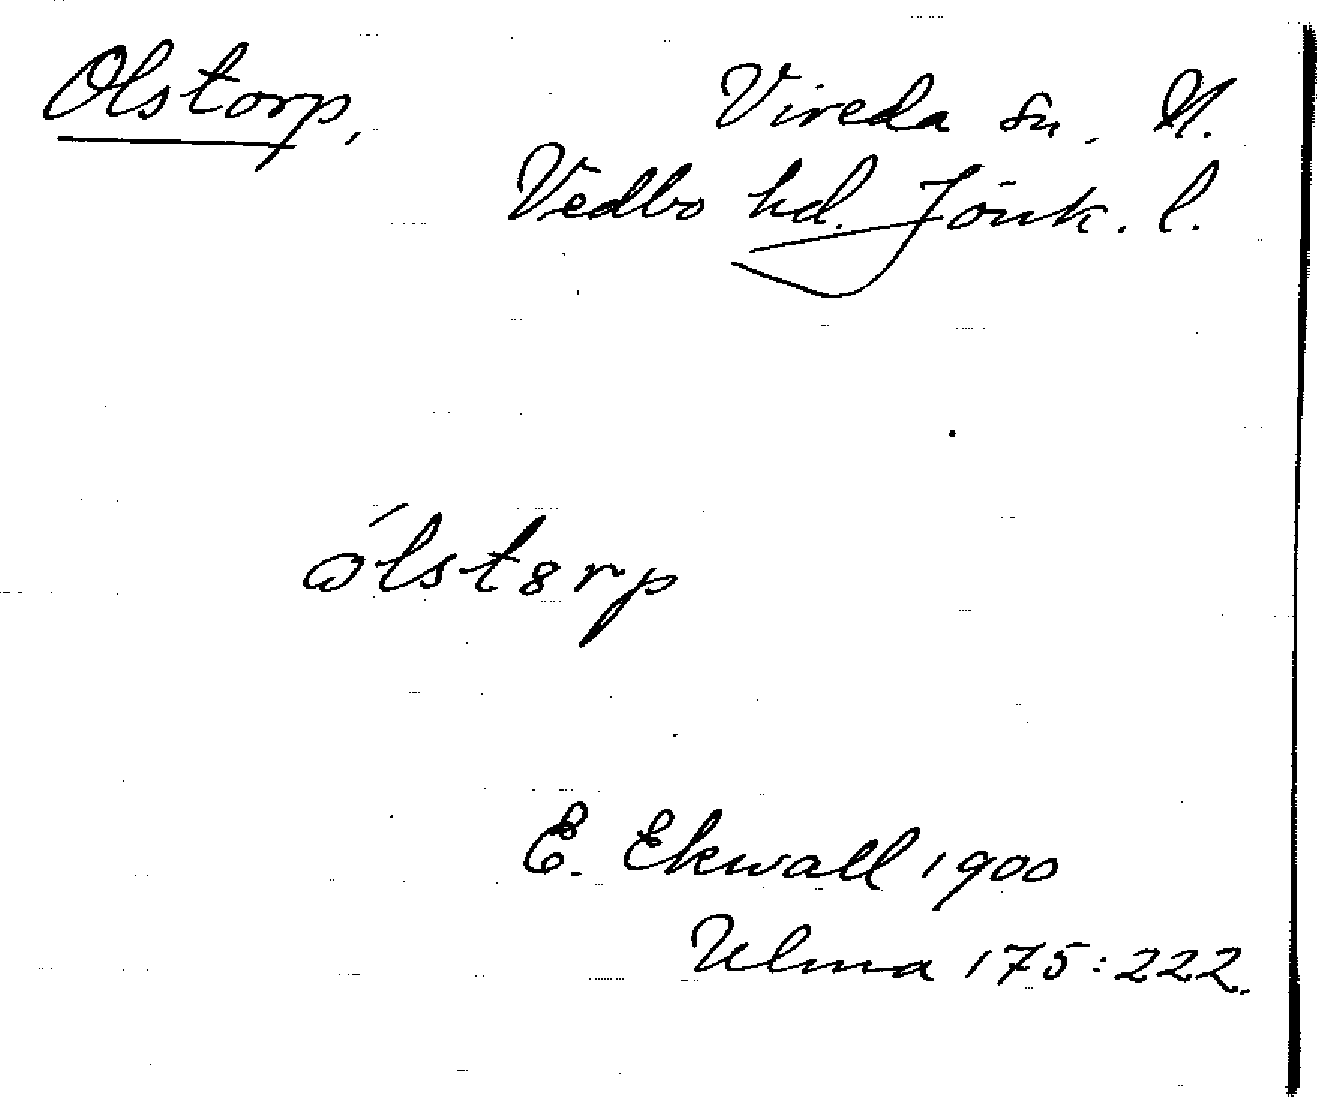 Olstorp, Vireda sn. N.
Vedbo hd. Jönk. l.
ólstȣrp
E. Ekwall 1900
Ulma 175:222.